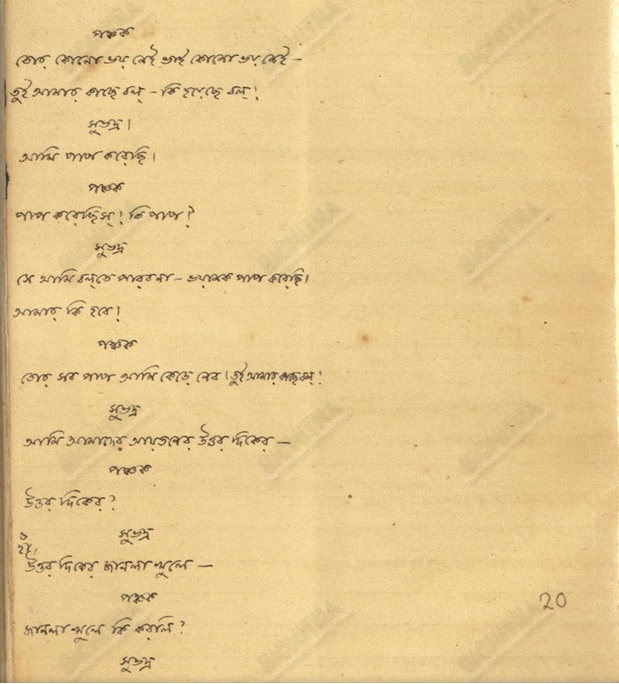 পঞ্চক
তোর কোনো ভয় নেই ভাই কোনো ভয় নেই –
তুই আমার কাছে বল্ – কি হয়েছে বল্!
সুভদ্র।
আমি পাপ করেছি।
পঞ্চক
পাপ করেছিস্! কি পাপ?
সুভদ্র
সে আমি বল্‌তে পারবনা – ভয়ানক পাপ করেছি।
আমার কি হবে!
পঞ্চক
তোর সব পাপ আমি কেড়ে নেব। তুই আমার কাছে বল্!
সুভদ্র
আমি আমাদের আয়তনের উত্তর দিকের –
পঞ্চক
উত্তর দিকের?
সুভদ্র
হাঁ,
উত্তর দিকের জানলা খুলে –
পঞ্চক
20
জানলা খুলে কি করলি?
সুভদ্র
BICHITRA